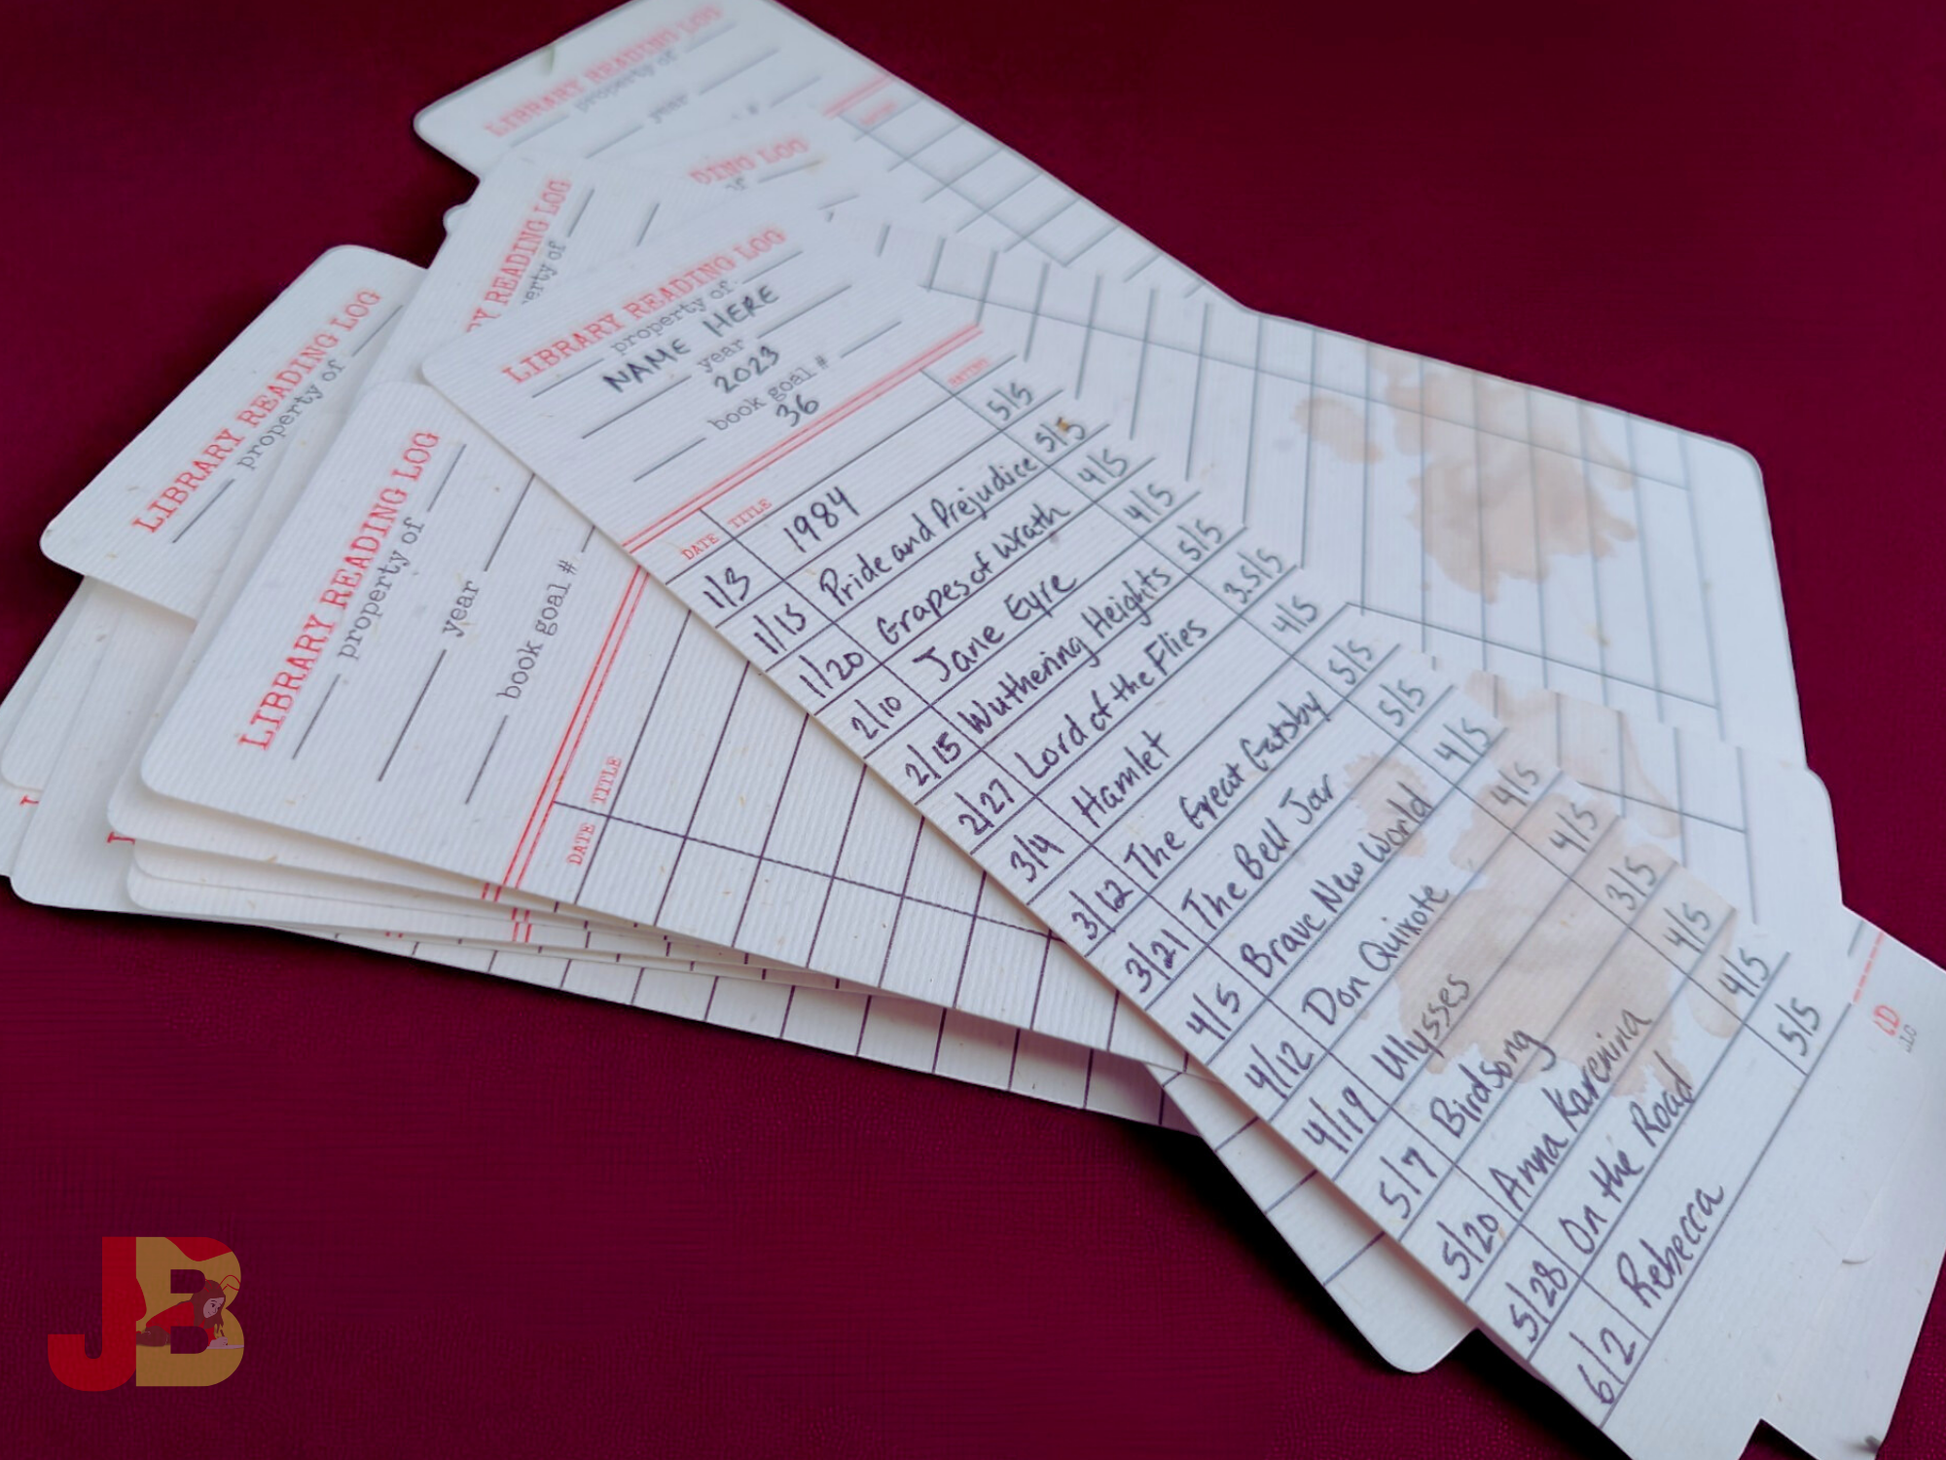 LIBRARY READING LOG
property of
year
LIBRARY READING LOG
property of
NAME HERE
year
2023
book goal #
36
DATE TITLE RATING
1/3 1984 5/5
1/13 Pride and Prejudice 5/5
1/20 Grapes of Wrath 4/5
2/10 Jane Eyre 4/5
2/15 Wuthering Heights 5/5
2/27 Lord of the Flies 3.5/5
3/4 Hamlet 4/5
3/12 The Great Gatsby 5/5
3/21 The Bell Jar 5/5
4/5 Brave New World 4/5
4/12 Don Quixote 4/5
4/19 Ulysses 4/5
5/7 Birdsong 3/5
5/20 Anna Karenina 4/5
5/28 On the Road 4/5
6/2 Rebecca 5/5
READING LOG
LIBRARY READING LOG
property of
LIBRARY READING LOG
property of
year
book goal #
DATE TITLE
JB